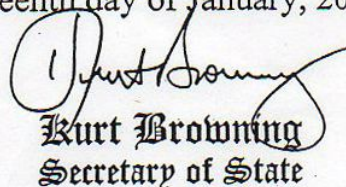 day of January, 20
Kurt Browning
Kurt Browning
Secretary of State